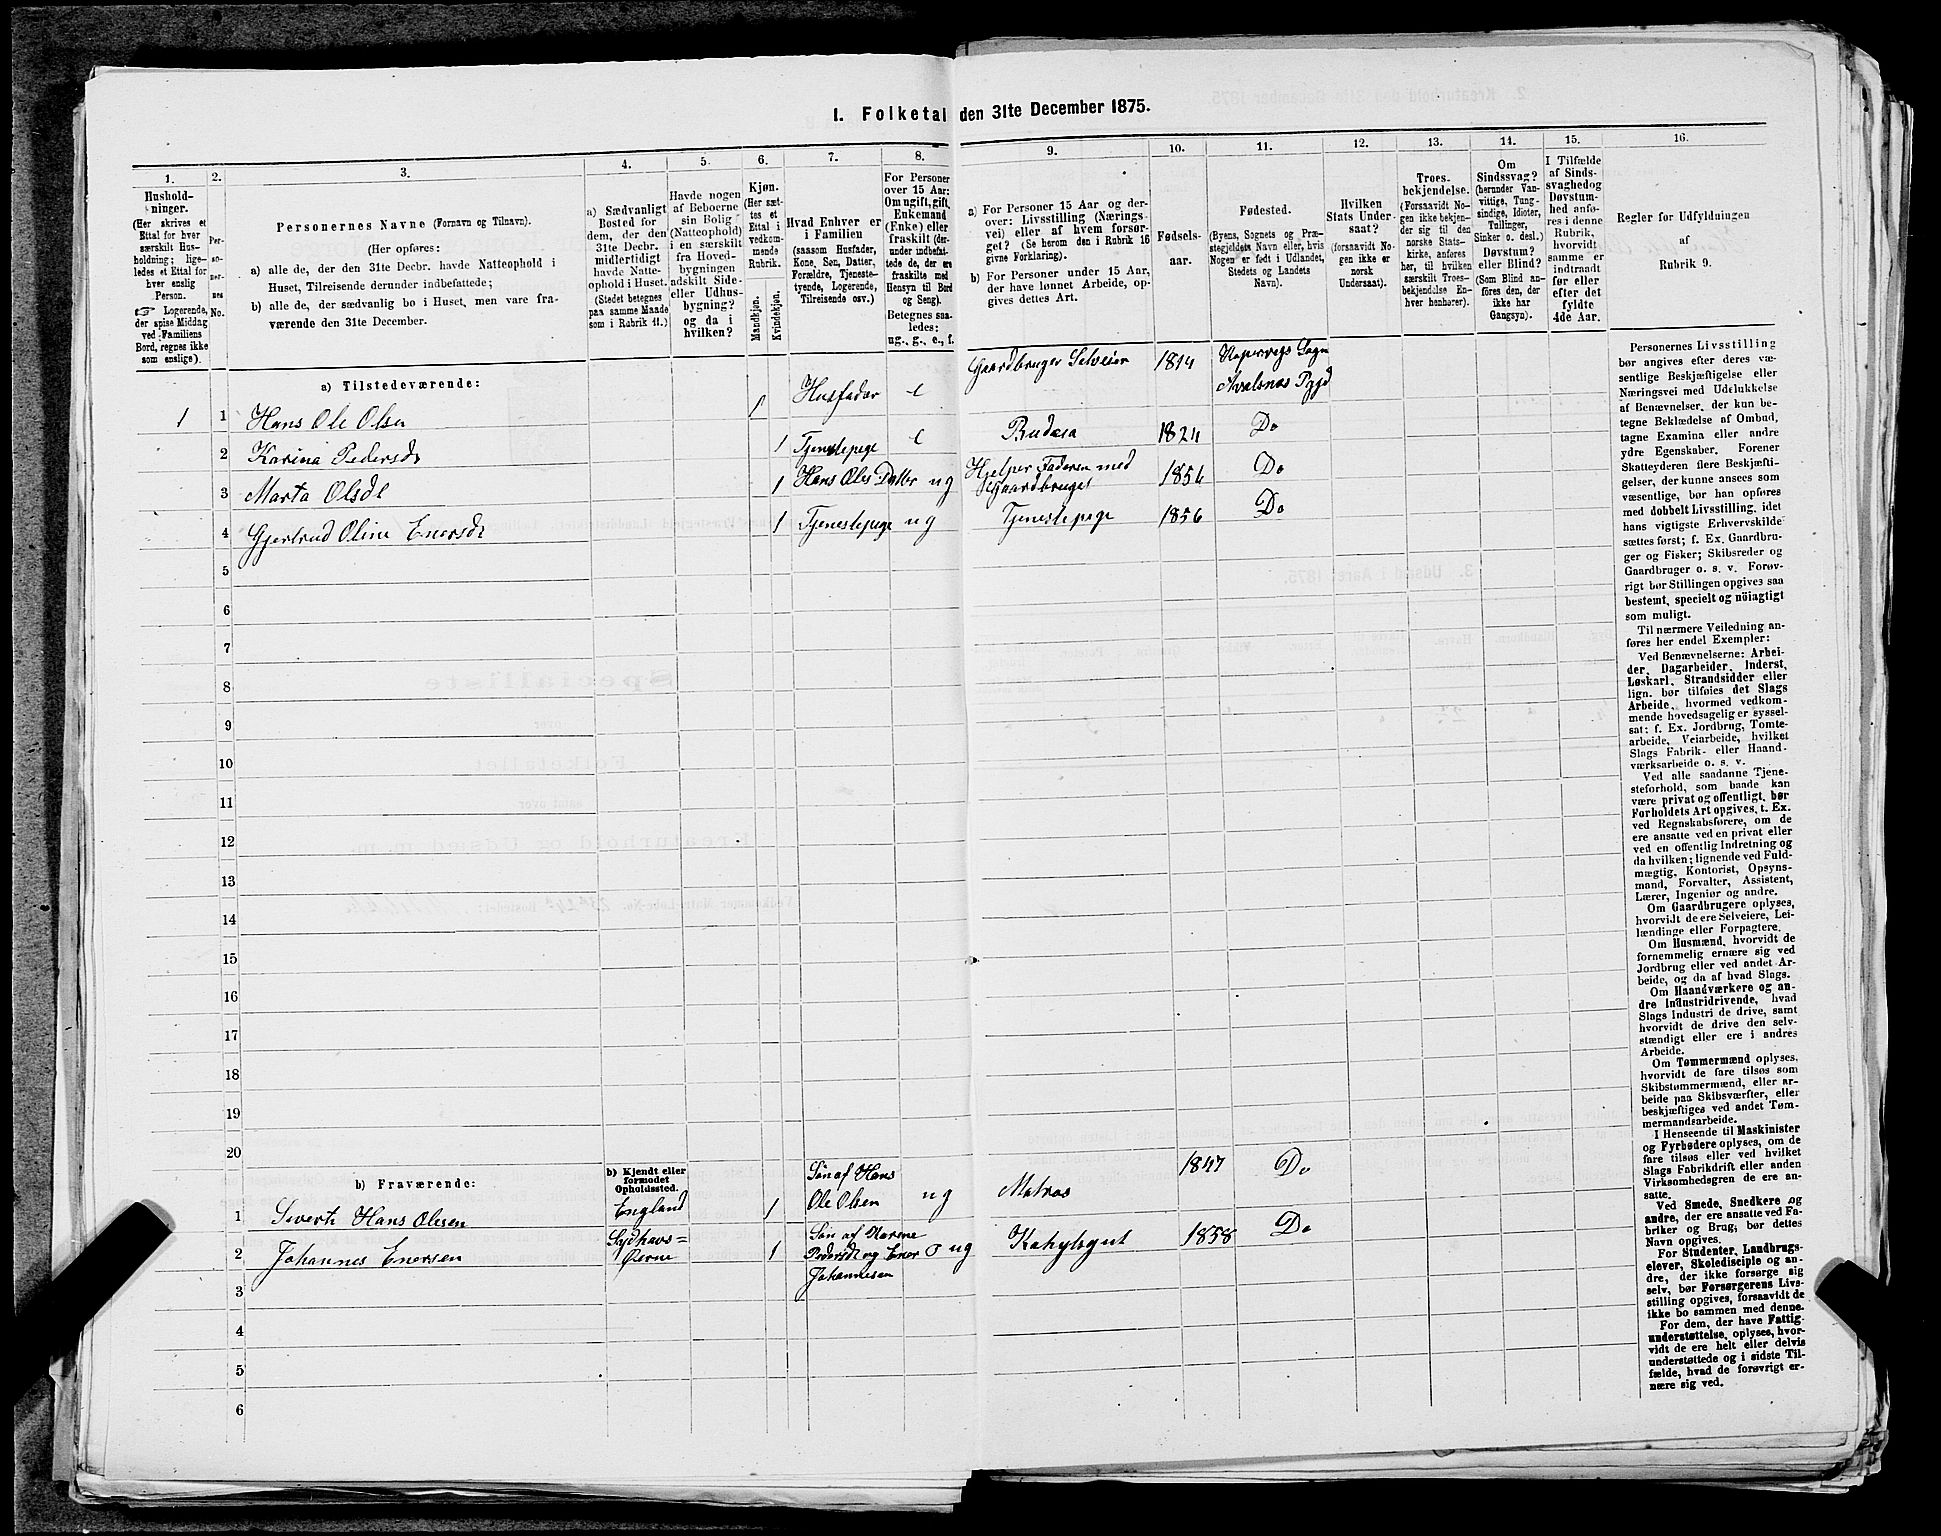 1. Folketal den 31te December 1875.
1.
2.
3.
4.
5.
6.
7.
8.
9.
10.
11.
12.
13.
14.
15.
16.
Hushold-
ninger.
(Her skrives et
Ettal for hver
særskilt Hus-
holdning; lige-
ledes et Ettal for
hver enslig
Person.
☞ Logerende,
der spise Middag
ved Familiens
Bord, regnes ikke
som enslige).
Per-
so-
ner-
nes
No.
Personernes Navne (Fornavn og Tilnavn).
(Her opføres:
a) alle de, der den 31te Decbr. havde Natteophold i
Huset, Tilreisende derunder indbefattede;
b) alle de, der sædvanlig bo i Huset, men vare fra-
værende den 31te December.
a) Sædvanligt
Bosted for
dem, der den
31te Decbr.
midlertidigt
havde Natte-
ophold i Huset.
(Stedet betegnes
paa samme Maade
som i Rubrik 11.)
Havde nogen
af Beboerne
sin Bolig
(Natteophold)
i en særskilt
fra Hoved-
bygningen
adskilt Side-
eller Udhus-
bygning?
og da i
hvilken?
Kjøn.
(Her sæt-
tes et
Ettal i
vedkom-
mende
Rubrik.
Mandkjøn.
Kvindekjøn.
Hvad Enhver er
i Familien
(saasom Husfader,
Kone, Søn, Datter,
Forældre, Tjeneste-
tyende, Logerende,
Tilreisende osv.)
For Personer
over 15 Aar:
Om ugift, gift,
Enkemand
(Enke) eller
fraskilt (der-
under indbefat-
tede de, der ere
fraskilte med
Hensyn til Bord
og Seng).
Betegnes saa-
ledes:
ug., g., e., f.
a) For Personer 15 Aar og der-
over: Livsstilling (Nærings-
vei) eller af hvem forsør-
get? (Se herom den i Rubrik 16
givne Forklaring).
b) For Personer under 15 Aar,
der have lønnet Arbeide, op-
gives dettes Art.
Fødsels-
aar.
Fødested.
(Byens, Sognets og Præ-
stegjeldets Navn eller, hvis
Nogen er født i Udlandet,
Stedets og Landets
Navn).
Hvilken
Stats Under-
saat?
(forsaavidt No-
gen ikke er
norsk
Undersaat).
Troes-
bekjendelse.
(Forsaavidt No-
gen ikke bekjen-
der sig til den
norske Stats-
kirke, anføres
her, til hvilken
særskilt Troes-
bekjendelse En-
hver henhører).
Om
Sindssvag?
(herunder Van-
vittige, Tung-
sindige, Idioter,
Tullinger,
Sinker o. desl.)
Døvstum?
eller Blind?
(Som Blind an-
føres den, der
ikke har
Gangsyn).
I Tilfælde
af Sinds-
svaghed og
Døvstum-
hed anfø-
res i denne
Rubrik,
hvorvidt
samme er
indtraadt
før eller
efter det
fyldte
4de Aar.
Regler for Udfyldningen
af
Rubrik 9.
a) Tilstedeværende:
1 1 Hans Ole Olsen 1 Husfader e Gaardbruger Selveier 1814 Sogn
Avalsnæs
2 Karina Pedersdt 1 Tjenestepige e Budeia 1824 Do
3 Marta Olsdt 1 Hans Oles Datter ug Hjelper Faderen med
Gaardbruget 1854 Do
4 Gjertrud Oline Enersdt 1 Tjenestepige ug Tjenestepige 1856 Do
5
6
7
8
9
10
11
12
13
14
15
16
17
18
19
20
b) Fraværende:
b) Kjendt eller
formodet
Opholdssted.
1 Sivert Hans Olsen England 1 Søn af Hans
Ole Olsen ug Matros 1847 Do
2 Johannes Enersen Sydhavs=
Øerne 1 Søn af Karene
Pedersdt og Ener
Johannesen ug 1858 Do
3
4
5
6
Personernes Livsstilling
bør angives efter deres væ-
sentlige Beskjæftigelse eller
Næringsvei med Udelukkelse
af Benævnelser, der kun be-
tegne Beklædelse af Ombud,
tagne Examina eller andre
ydre Egenskaber. Forener
Skatteyderen flere Beskjæfti-
gelser, der kunne ansees som
væsentlige, bør han opføres
med dobbelt Livsstilling, idet
hans vigtigste Erhvervskilde
sættes først; f. Ex. Gaardbru-
ger og Fisker; Skibsreder og
Gaardbruger o. s. v. Forøv-
rigt bør Stillingen opgives saa
bestemt, specielt og nöiagtigt
som muligt.
Til nærmere Veiledning an-
føres her endel Exempler:
Ved Benævnelserne: Arbei-
der, Dagarbeider, Inderst,
Løskarl, Strandsidder eller
lign. bør tilføies det Slags
Arbeide, hvormed vedkom-
mende hovedsagelig er syssel-
sat: f. Ex. Jordbrug, Tomte-
arbeide, Veiarbeide, hvilket
Slags Fabrik- eller Haand-
værksarbeide o. s. v.
Ved alle saadanne Tjene-
steforhold, som baade kan
være privat og offentligt, bør
Forholdets Art opgives, t. Ex.
ved Regnskabsførere, om de
ere ansatte ved en privat eller
ved en offentlig Indretning og
da hvilken; lignende ved Fuld-
mægtig, Kontorist, Opsyns-
mand, Forvalter, Assistent,
Lærer, Ingeniør og andre.
Om Gaardbrugere oplyses,
hvorvidt de ere Selveiere, Lei-
lændinge eller Forpagtere.
Om Husmænd, hvorvidt de
fornemmelig ernære sig ved
Jordbrug eller ved andet Ar-
beide, og da af hvad Slags.
Om Haandværkere og an-
dre Industridrivende, hvad
Slags Industri de drive, samt
hvorvidt de drive den selv-
stændigt eller ere i andres
Arbeide.
Om Tømmermænd oplyses,
hvorvidt de fare tilsøs som
Skibstømmermænd, eller ar-
beide paa Skibsværfter, eller
beskjæftiges ved andet Tøm-
mermandsarbeide.
I Henseende til Maskinister
og Fyrbødere oplyses, om de
fare tilsøs eller ved hvilket
Slags Fabrikdrift eller anden
Virksomhedsgren de ere an-
satte.
Ved Smede, Snedkere og
andre, der ere ansatte ved Fa-
briker og Brug; bør dettes
Navn opgives.
For Studenter, Landbrugs-
elever, Skoledisciple og an-
dre, der ikke forsørge sig
selv, bør Forsørgerens Livs-
stilling opgives, forsaavidt de
ikke bo sammen med denne.
For dem, der have Fattig-
understøttelse, oplyses, hvor-
vidt de ere helt eller delvis
understøttede og i sidste Til-
fælde, hvad de forøvrigt er-
nære sig ved.